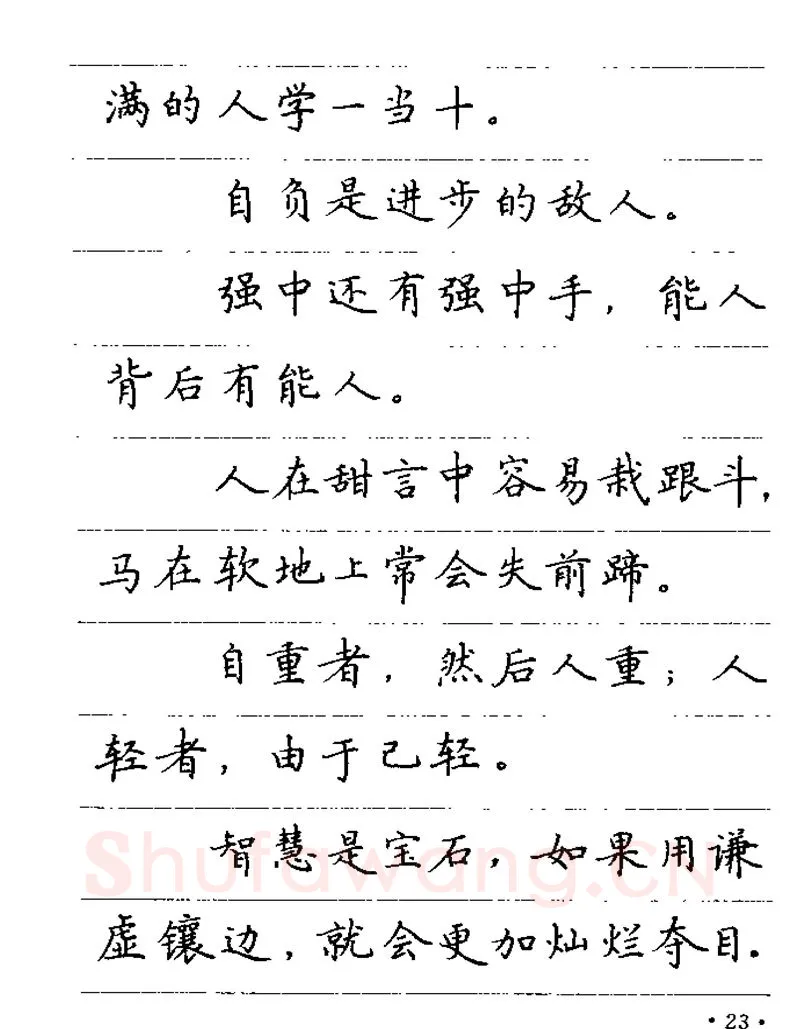 满的人学一当十。
自负是进步的敌人。
强中还有强中手，能人
背后有能人。
人在甜言中容易栽跟斗，
马在软地上常会失前蹄。
自重者，然后人重；人
轻者，由于己轻。
智慧是宝石，如果用谦
虚镶边，就会更加灿烂夺目。
Shufawang.CN
·23·